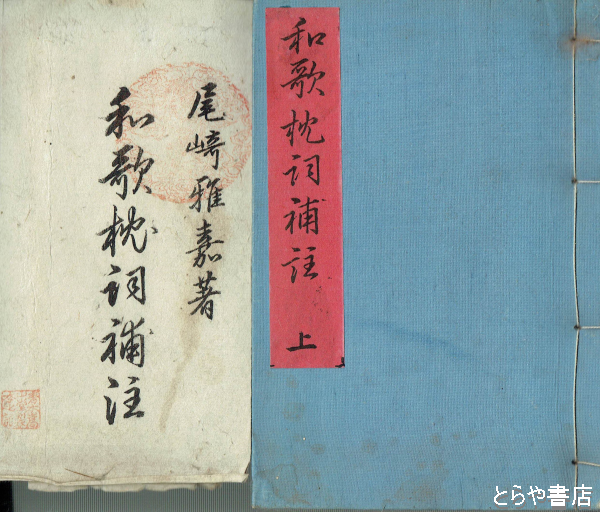 和歌枕詞補註 上
尾崎雅嘉著
和歌枕詞補注
とらや書店